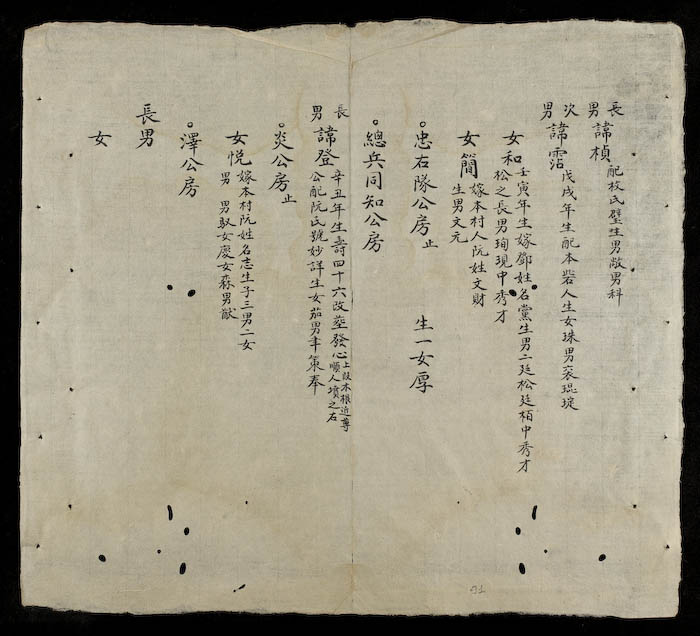 長男諱楨配枚氏璧生男敞男科
次男諱霑戊戌年生配本砦人生女珠男褒琨琔
女和壬寅年生嫁鄧姓名黨生男二廷松廷栢中秀才
松之長男珣現中秀才
女簡嫁本村人阮姓文財
生男文元
。忠右隊公房止 生一女厚
。總兵同知公房
長男諱登辛丑年生壽四十六改葬發心上段木根近尊
順人墳之右
公配阮氏號妙詳生女茄男年策奉
。炎公房止
女悅嫁本村阮姓名志生子三男二女
男 男馭女慶女森男猷
。澤公房
長男
女
91